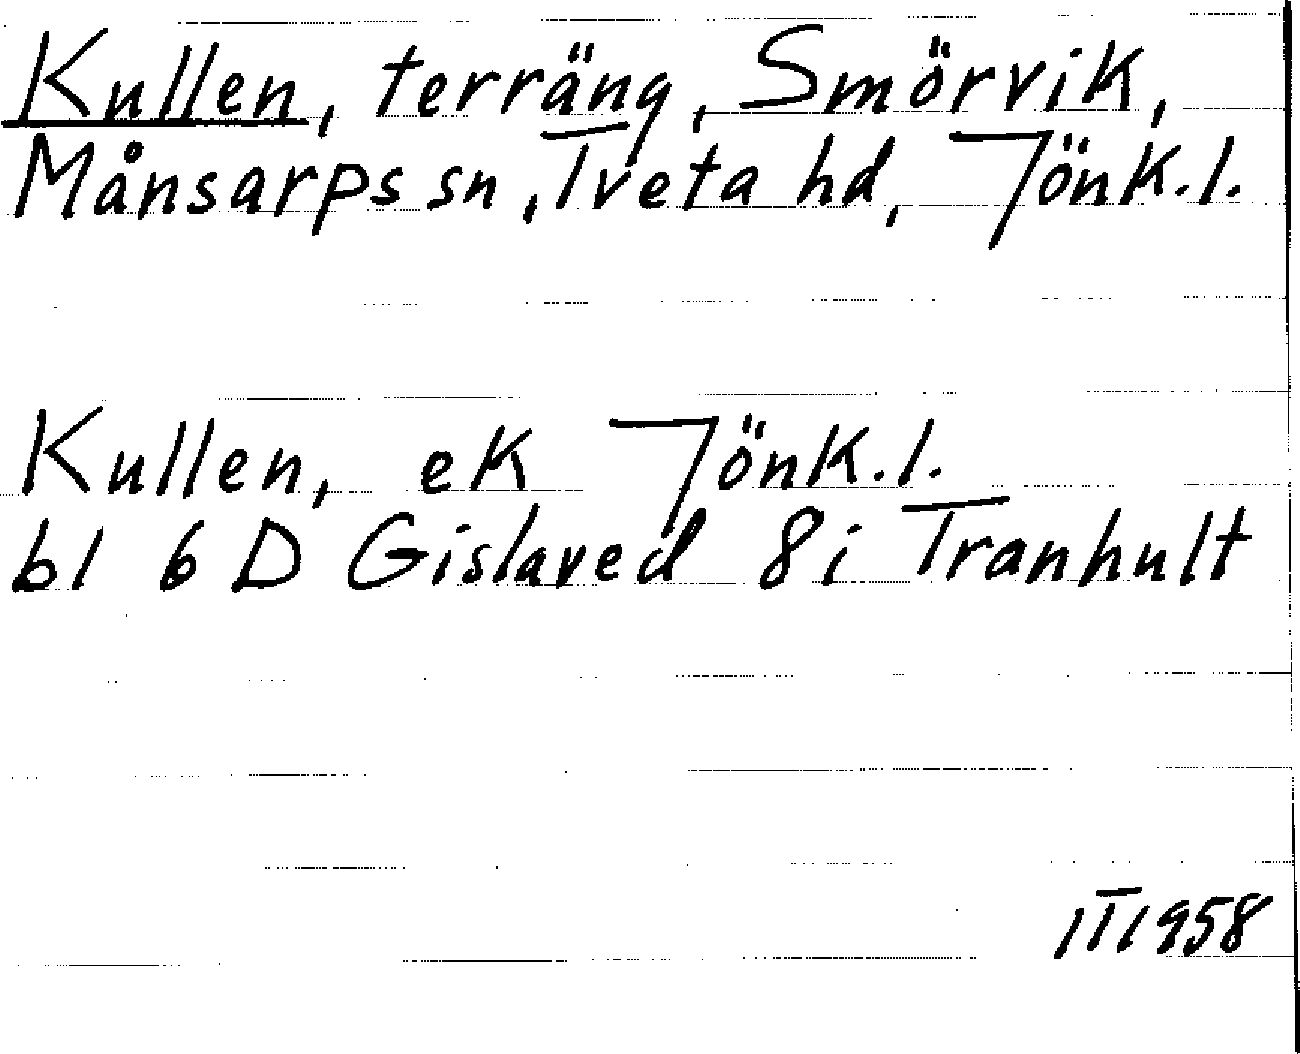 Kullen, terräng, Smörvik,
Månsarps sn, Tveta hd, Jönk.l.
Kullen, ek Jönk.l.
bl 6 D Gislaved 8i Tranhult
1T1958